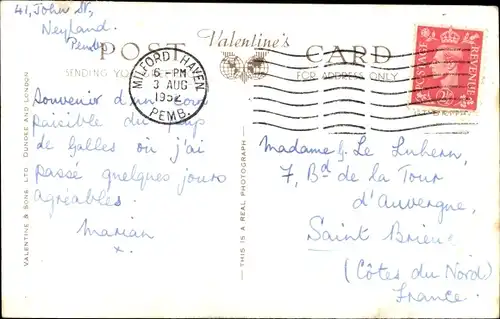 41, John St,
Neyland.
Pembs.
POST
Valentine's
CARD
SENDING YO
FOR ADDRESS ONLY
MILFORD HAVEN
6 - PM
3 AUG
1952
PEMB.
POSTAGE
REVENUE
2½
Souvenir d'un coin
paisible du pays
de Galles où j'ai
passé quelques jours
agréables.
Marian
x.
Madame
Le
7, Bd de la Tour
d'Auvergne,
Saint Brieuc
(Côtes du Nord)
France.
VALENTINE & SONS LTD DUNDEE AND LONDON
THIS IS A REAL PHOTOGRAPH